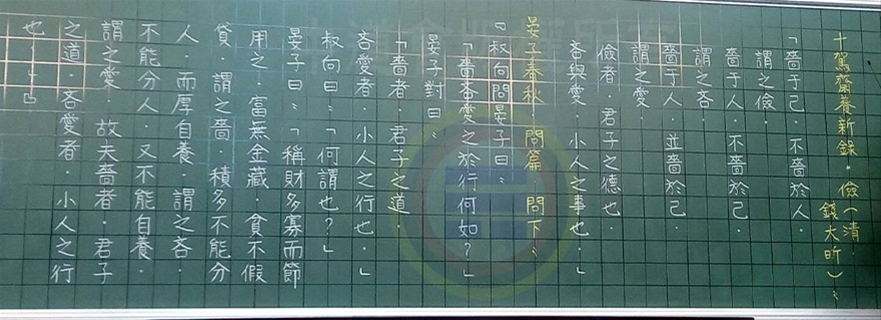 十駕齋養新錄．儉（清．錢大昕）：
「嗇于己．不嗇於人．
謂之儉．
嗇于人．不嗇於己．
謂之吝．
嗇于人．並嗇於己．
謂之愛．
儉者．君子之德也．
吝與愛．小人之事也．」
晏子春秋．問篇．問下：
「叔向問晏子曰：
「嗇吝愛之於行何如？」
晏子對曰：
「嗇者．君子之道．
吝愛者．小人之行也．」
叔向曰：「何謂也？」
晏子曰：「稱財多寡而節
用之．富無金藏．貧不假
貸．謂之嗇．積多不能分
人．而厚自養．謂之吝．
不能分人．又不能自養．
謂之愛．故夫嗇者．君子
之道．吝愛者．小人之行
也．」』